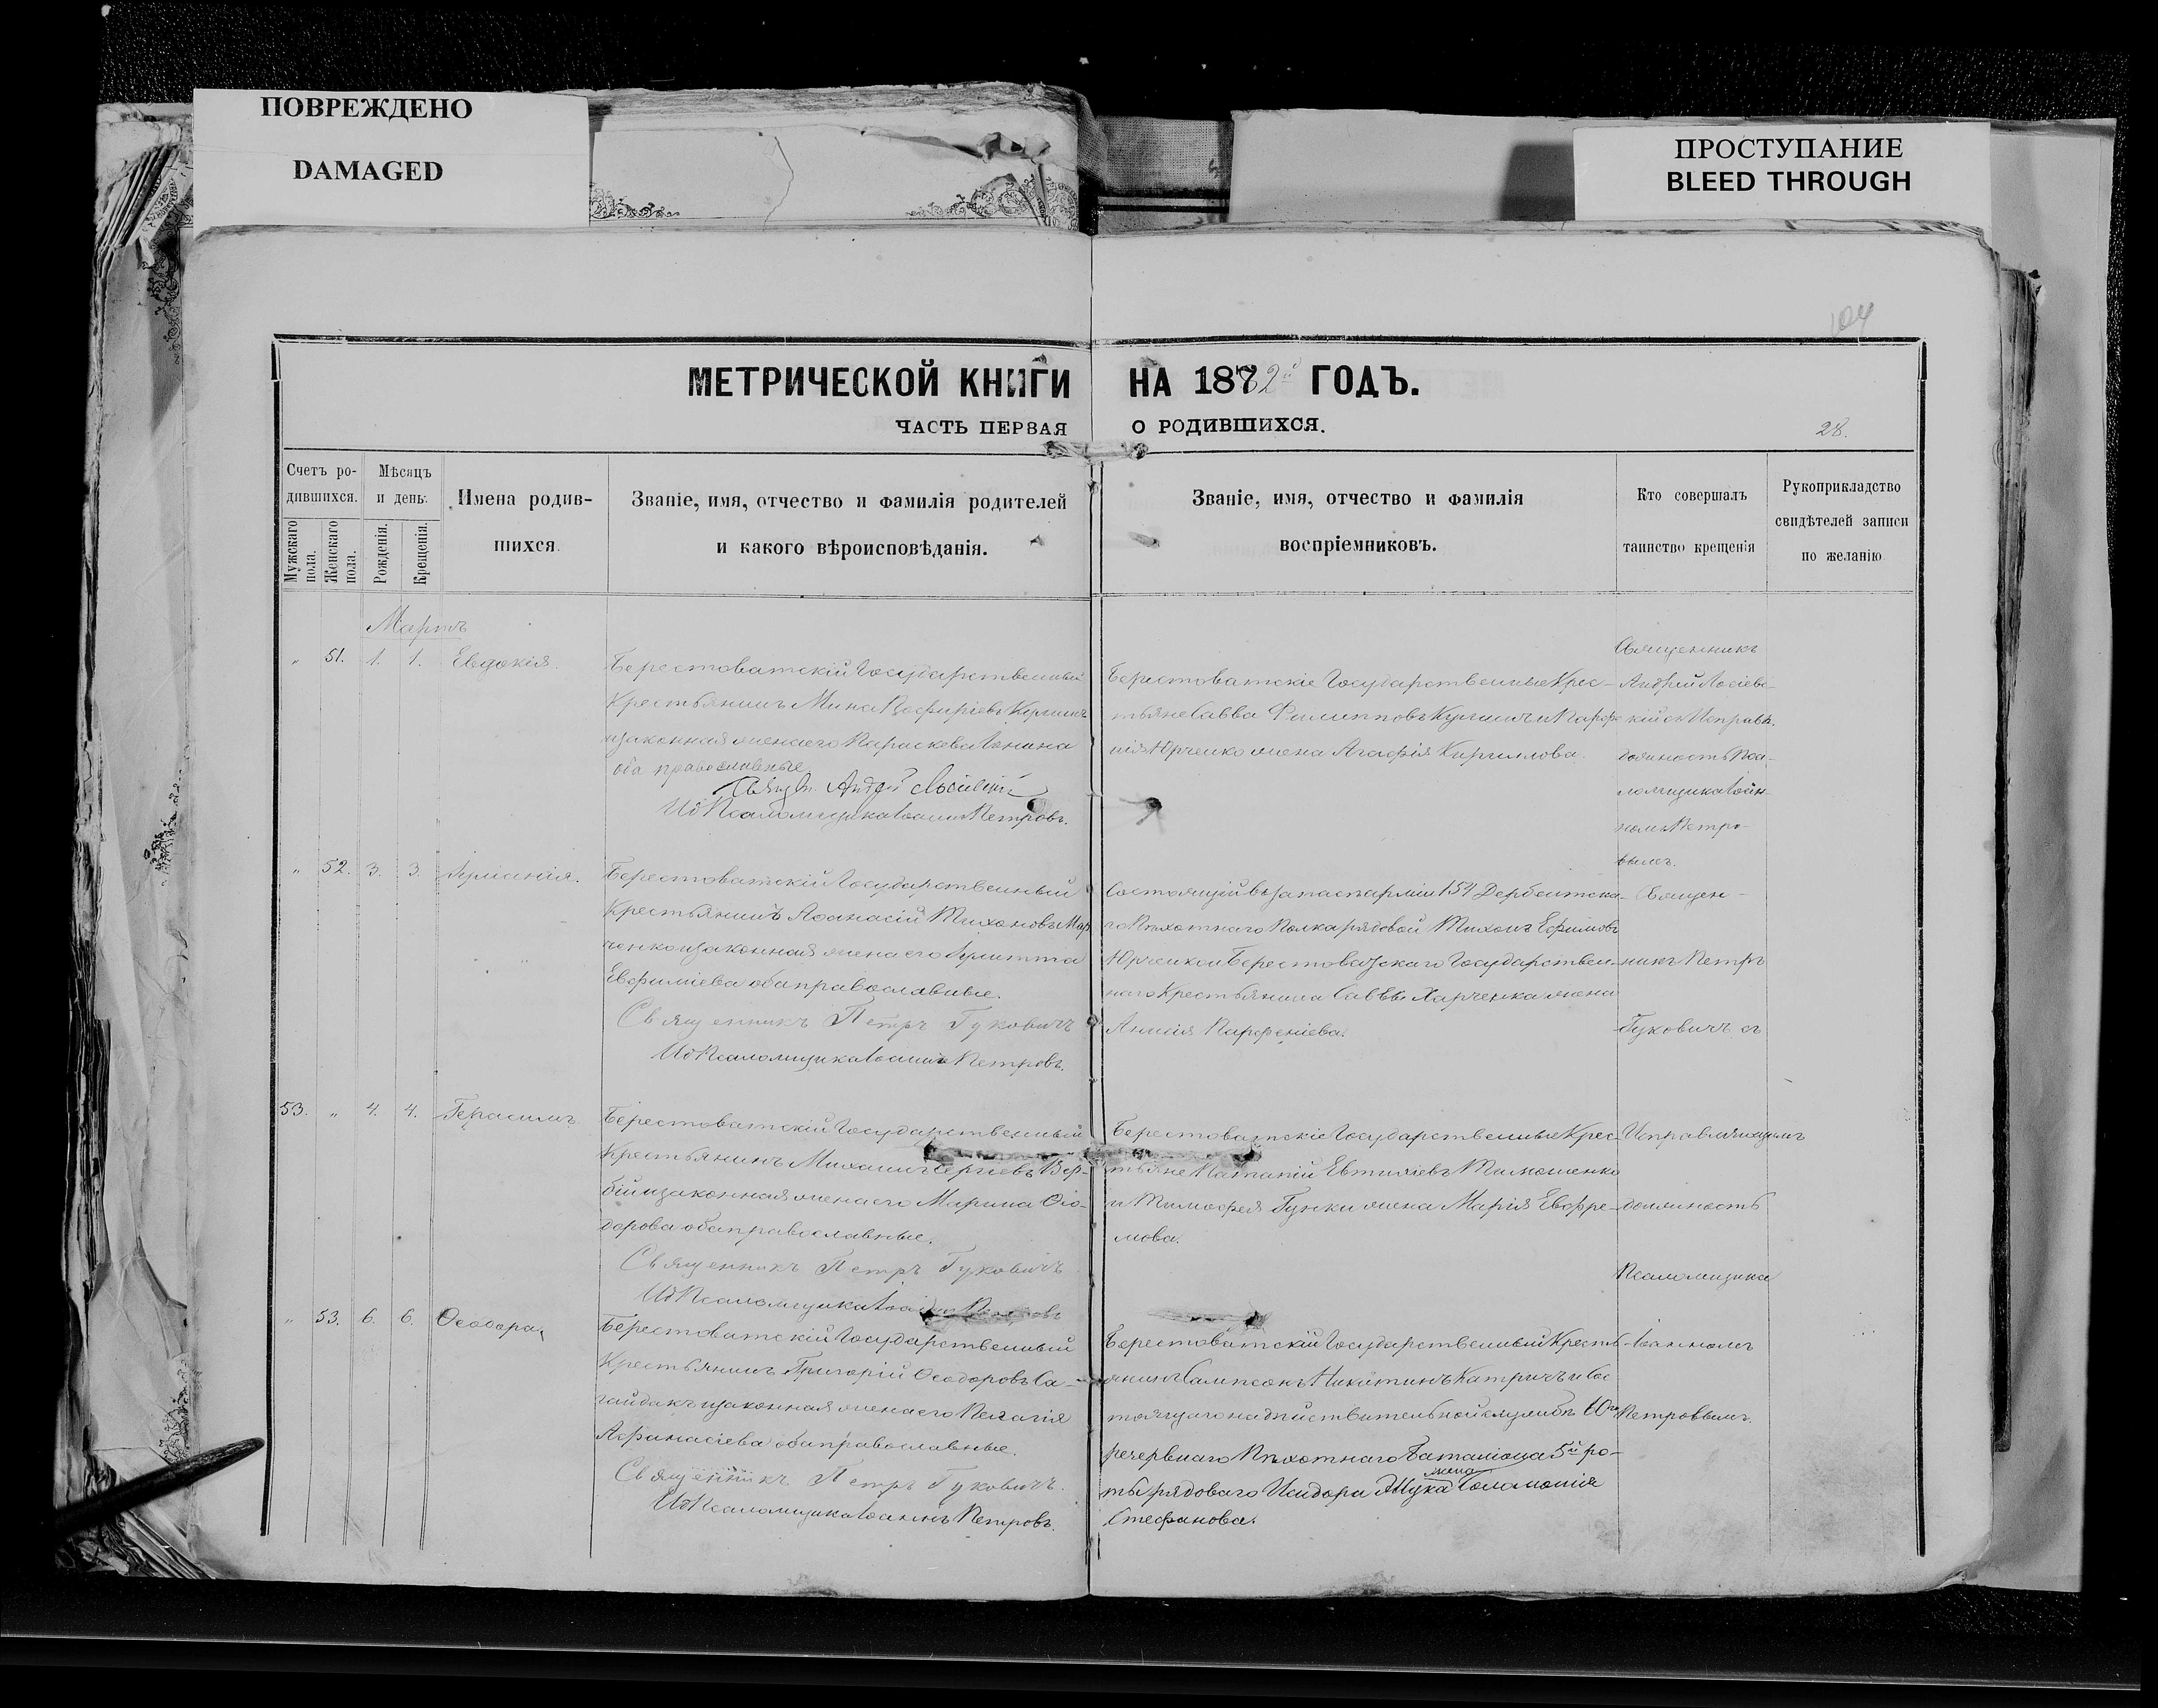 ПОВРЕЖДЕНО
DAMAGED
ПРОСТУПАНИЕ
BLEED THROUGH
104
МЕТРИЧЕСКОЙ КНИГИ НА 1882й ГОДЪ.
ЧАСТЬ ПЕРВАЯ О РОДИВШИХСЯ.
28.
Счетъ родившихся.
Мужскаго пола.
Женскаго пола.
Мѣсяцъ и день.
Рожденія.
Крещенія.
Имена родившихся.
Званіе, имя, отчество и фамилія родителей
и какого вѣроисповѣданія.
Званіе, имя, отчество и фамилія
воспріемниковъ.
Кто совершалъ
таинство крещенія
Рукоприкладство
свидѣтелей записи
по желанію
Мартъ
" 51. 1. 1. Евдокія.
Берестоватскій Государственный
Крестьянинъ Мина
и законная жена его Параскева
оба православные
Андрей
Ио Псаломщика Іоаннъ Петровъ.
Берестоватскіе Государственные Крес-
тьяне Савва Филипповъ
Юрченко жена Агафія
Священникъ
Андрей
должность Пса-
ломщика Іоан-
номъ Петро-
вымъ.
" 52. 3. 3.
Берестоватскій Государственный
Крестьянинъ Аѳанасій Тихоновъ Мар
ченко и законная жена его
Евфиміева оба православные.
Священникъ Петръ Гуковичъ
Ио Псаломщика Іоаннъ Петровъ.
Состоящій въ запасѣ арміи 154 Дербентска-
го Пѣхотнаго Полка рядовой Тихонъ Ефимовъ
Юрченко и Берестоватскаго Государствен-
наго Крестьянина Саввы Харченка жена
Анисія Парфеніева.
Священ-
никъ Петръ
Гуковичъ съ
53. " 4. 4. Герасимъ
Берестоватскій Государственный
Крестьянинъ Михаилъ Сергіевъ Вер-
бій и законная жена его Марина Ѳео-
дорова оба православные.
Священникъ Петръ Гуковичъ
Ио Псаломщика Іоаннъ Петровъ
Берестоватскіе Государственные Крес-
тьяне Евтихіевъ Тимошенко
и Тимоѳея жена Марія Евфре-
мова.
Исправляющимъ
должность
Псаломщика
" 53. 6. 6. Ѳеодора,
Берестоватскій Государственный
Крестьянинъ Григорій Ѳеодоровъ Са-
гайдакъ и законная жена его Пелагія
Аѳанасіева оба православные.
Священникъ Петръ Гуковичъ.
Ио Псаломщика Іоаннъ Петровъ.
Берестоватскій Государственный Кресть-
янинъ Сампсонъ Никитинъ Катричъ и Сос
тоящаго на дѣйствительной службѣ 60го
резервнаго Пѣхотнаго Баталіона 5й ро-
ты рядоваго Исидора Жука жена Соломонія
Стефанова.
Іоанномъ
Петровымъ.